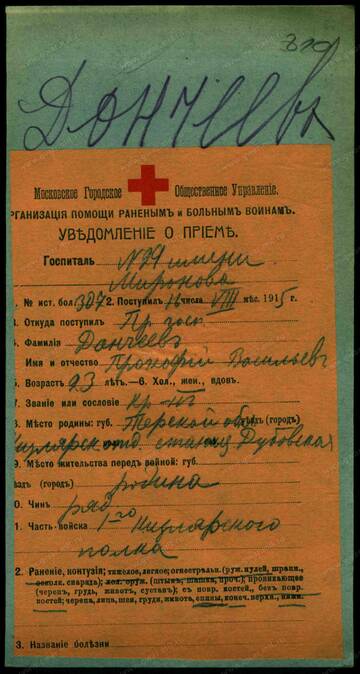 ДОНЧЕЕВЪ
Московское Городское Общественное Управленіе.
РГАНИЗАЦІЯ ПОМОЩИ РАНЕНЫМЪ и БОЛЬНЫМЪ ВОИНАМЪ.
УВѢДОМЛЕНІЕ О ПРІЕМѢ.
Госпиталь N 29 имени
Миронова
. № ист. бол. 307 2. Поступилъ 16 числа VIII мѣс. 1915 г.
. Откуда поступилъ Пр
. Фамилія Дончеевъ
Имя и отчество Прокофій Васильевъ
. Возрастъ 23 лѣтъ.—6. Хол., жен., вдов.
7. Званіе или сословіе
8. Мѣсто родины: губ. Терской обл уѣздъ (городъ)
Кизлярск отд. станиц Дубовская
9. Мѣсто жительства передъ войной: губ.
ѣздъ (городъ) родина
0. Чинъ ряд
1. Часть войска 1го Кизлярского
полка
2. Раненіе, контузія; тяжелое, легкое; огнестрѣльн. (руж. пулей, шрапн.,
осколк. снаряда); хол. оруж. (штыкъ, шашка, проч.); проникающее
(черепъ, грудь, животъ, суставъ); съ повр. костей, безъ повр.
костей; черепа, лица, шеи, груди, живота, спины, конеч. верхн., нижн.
3. Названіе болѣзни